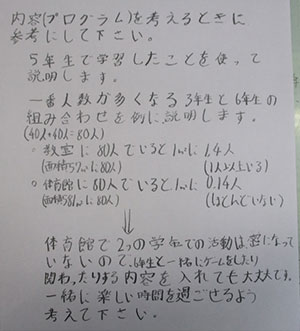 内容(プログラム)を考えるときに
参考にして下さい。
5年生で学習したことを使って
説明します。
一番人数が多くなる3年生と6年生の
組み合わせを例に説明します。
(40人+40人=80人)
○教室に80人でいると1㎡に1.4人
(面積57㎡に80人) (1人以上いる)
○体育館に80人でいると1㎡に0.14人
(面積581㎡に80人) (ほとんどいない)
⇓
体育館で2つの学年での活動は密になって
いないので、6年生と一緒にゲームをしたり
関わったりする内容を入れても大丈夫です。
一緒に楽しい時間を過ごせるよう
考えて下さい。